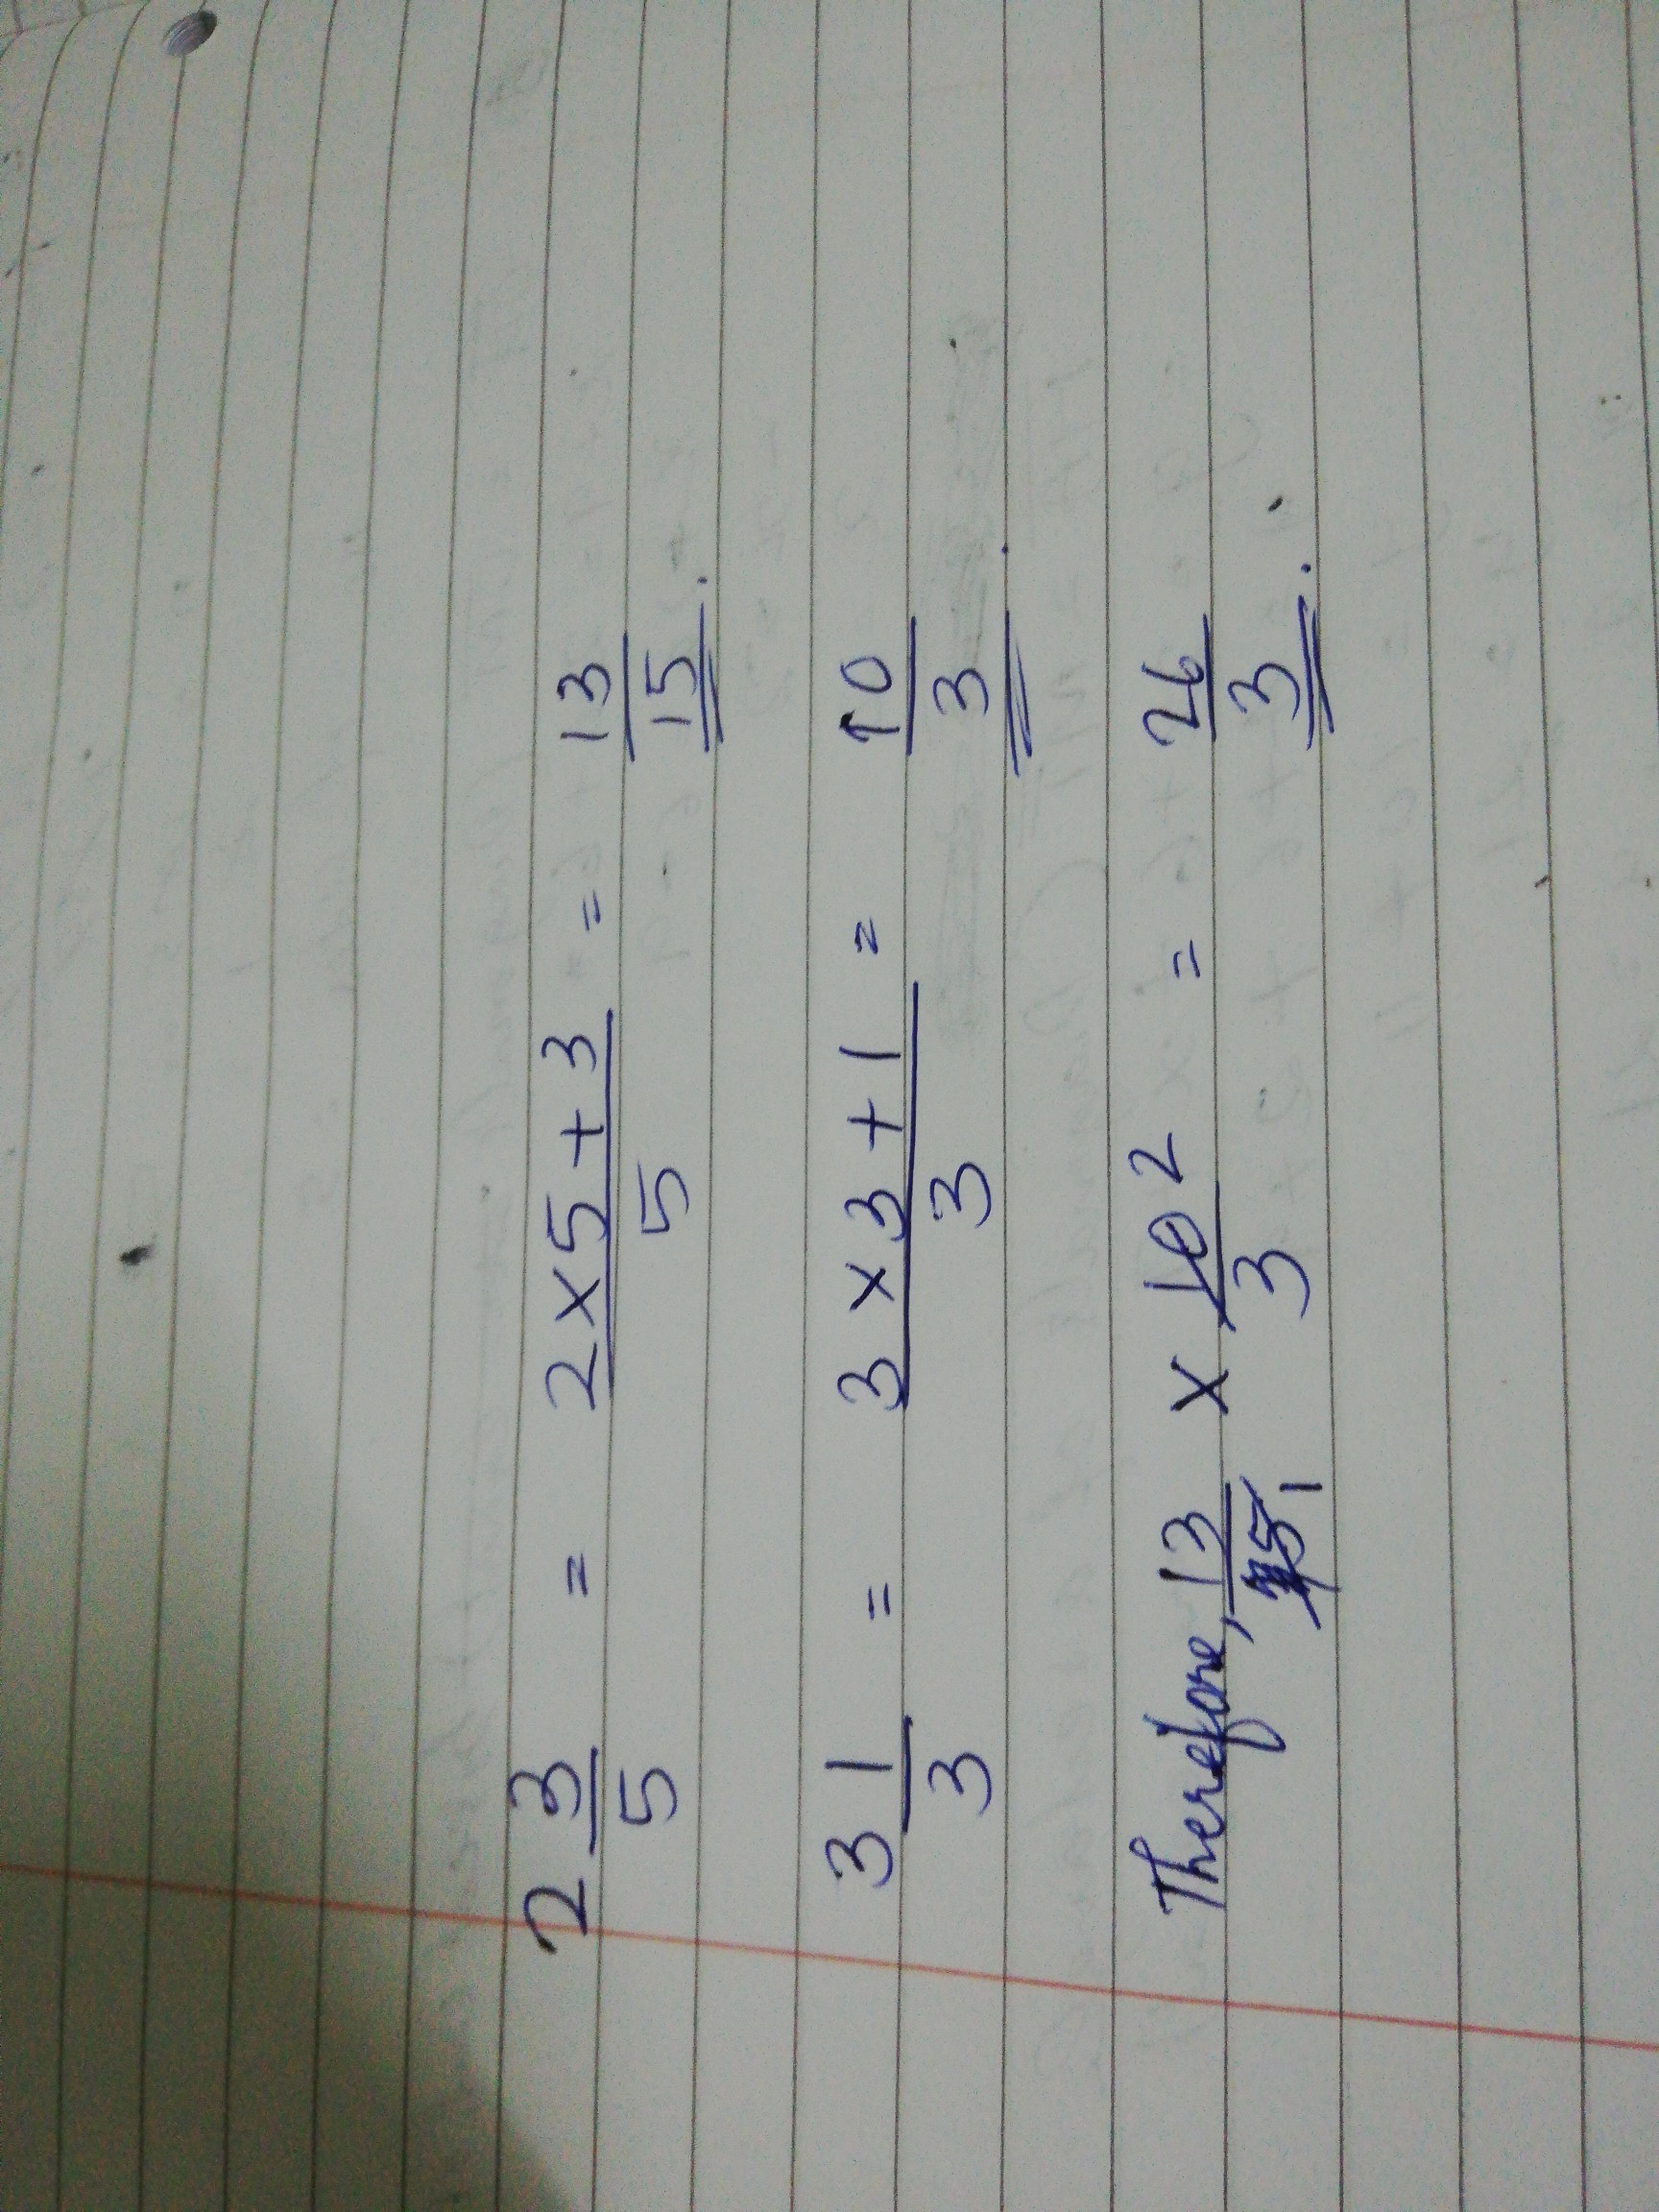 2 3/5 = (2 × 5 + 3)/5 = 13/15.
3 1/3 = (3 × 3 + 1)/3 = 10/3.
Therefore, 13/5 1 × 10/3 2 = 26/3.